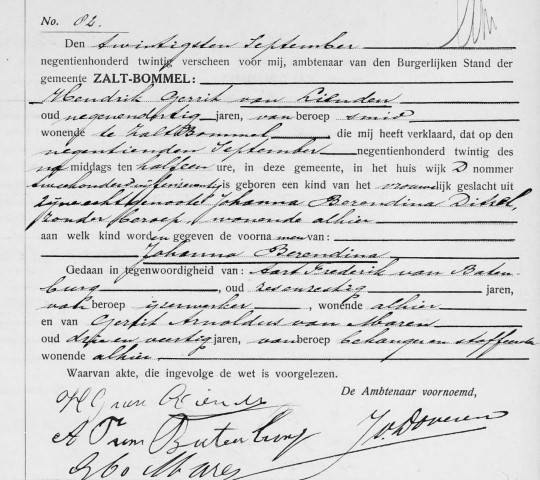 No. 82.
Den twintigsten September
negentienhonderd twintig verscheen voor mij, ambtenaar van den Burgerlijken Stand der
gemeente ZALT-BOMMEL:
Hendrik Gerrit van Lienden
oud negenendertig jaren, van beroep smid
wonende te Zaltbommel, die mij heeft verklaard, dat op den
negentienden September negentienhonderd twintig des
na middags ten half een ure, in deze gemeente, in het huis wijk D nommer
geboren een kind van het vrouwelijk geslacht uit
zijne echtgenoote Johanna Berendina
zonder beroep, wonende alhier
aan welk kind worden gegeven de voornamen van:
Johanna Berendina
Gedaan in tegenwoordigheid van: Aart Frederik van Baten-
burg, oud zesenzestig jaren,
van beroep ijzerwerker, wonende alhier
en van Gerrit Arnoldus van Maren
oud drie en veertig jaren, van beroep behanger en stoffeerder
wonende alhier.
Waarvan akte, die ingevolge de wet is voorgelezen.
De Ambtenaar voornoemd,
HG van Lienden
A F van Batenburg
J v Doveren